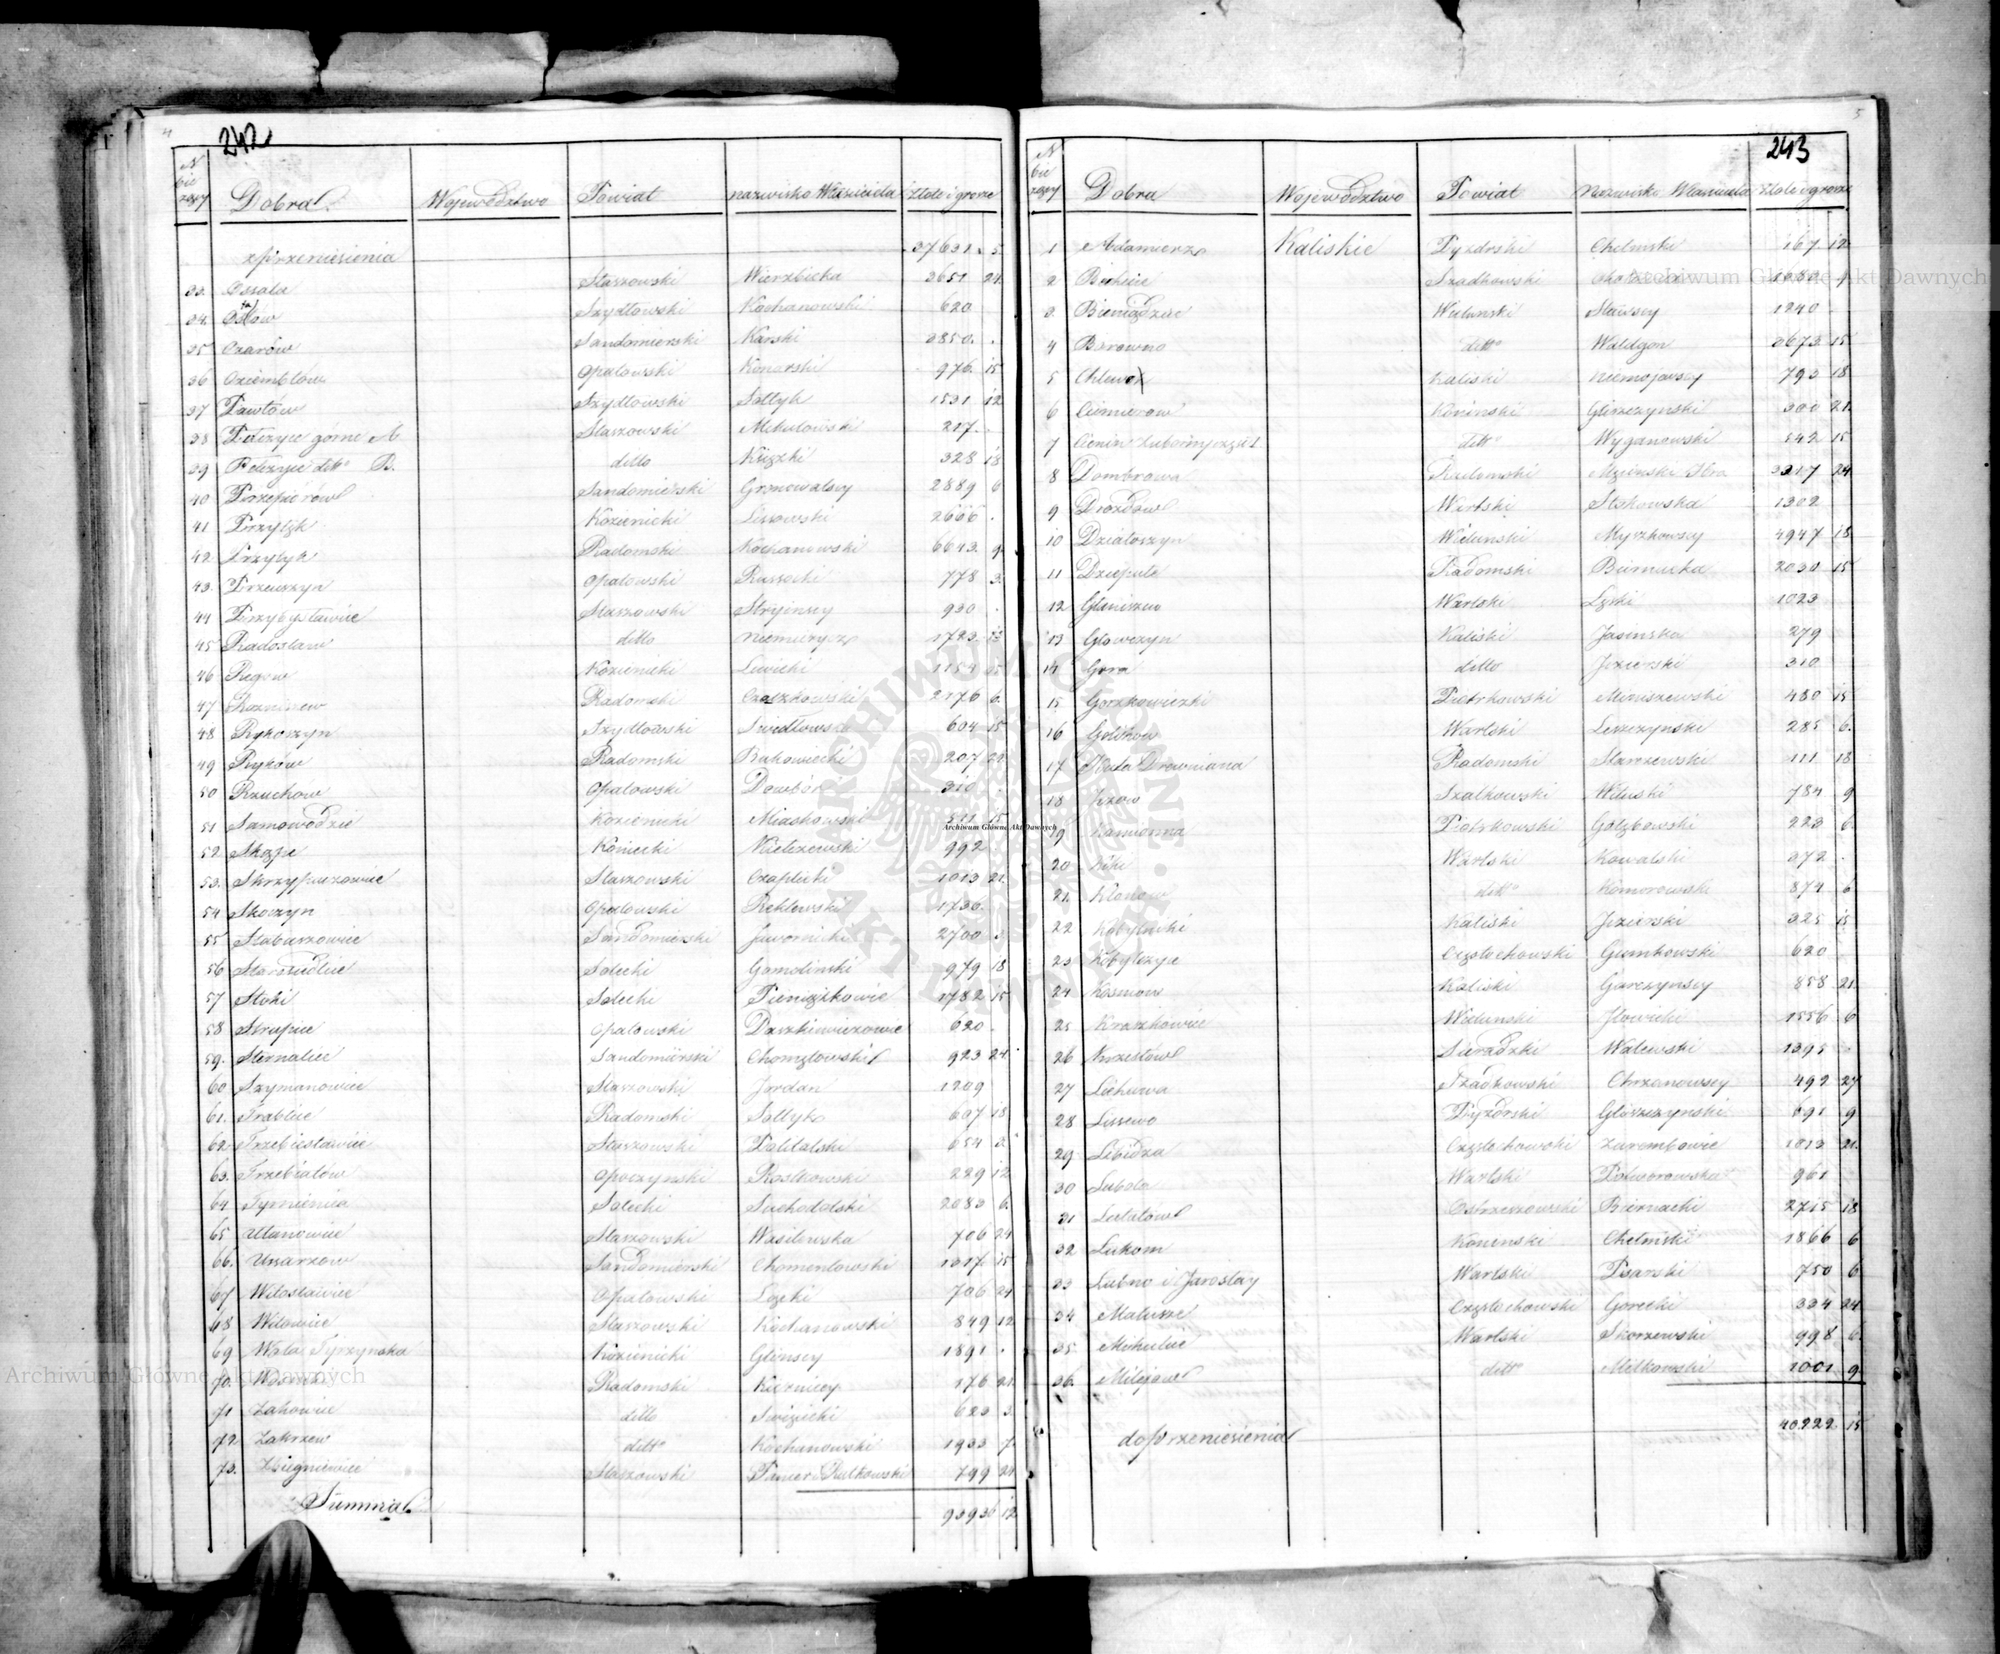 242
N bie rzący Dobra Województwo Powiat nazwisko Właściciela Złote i grosze
z przeniesienia 37631 5
33. Ossala Staszowski Wierzbicka 3651 21
34. Ostów Szydłowski Kochanowski 620
35 Ożarów Sandomierski Karski 3850
36 Oziembłów Opatowski Konarski 976 15
37 Pawłów Szydłowski Sołtyk 1531 12
38 Pełczyce górne A Staszowski Mikułowski 217
39 Pełczyce ditto B. ditto Książki 328 18
40 Przepiórów Sandomierski Gronowalscy 2889 6
41 Przyłęk Kozienicki Lissowski 2666
42 Przytyk Radomski Kochanowski 6643 9
43. Przeuszyn Opatowski Russocki 778 3
44 Przybysławice Staszowski Stryiensey 930
45 Radosław ditto Niemirycz 1723 13
46 Regow Kozienicki Lewicki 1154 15
47 Rozniszew Radomski Czaszkowski 2176 6
48 Rykoszyn Szydłowski Swidłowska 604 15
49 Ryków Radomski Bukowiecki 207 21
50 Rzuchów Opatowski Dowbór 310
51 Samowodzie Kozienicki Miaskowski 511 15
52 Skąpe Koniecki Kietczewski 992
53. Skrzypaczowice Staszowski Czaplicki 1013 21
54 Skoczyn Opatowski Reklewski 1736
55 Stabuszowice Sandomierski Jawornicki 2700
56 Starosiedlice Solecki Gomoliński 979 18
57 Stoki Solecki Pieniążkowie 1782 15
58 Strupice Opatowski Daszkiewiczowie 620
59. Sternalice Sandomirski Chomętowski 923 24
60 Szymanowice Staszowski Jordan 1209
61. Trablice Radomski Sołtyk 607 18
62. Trzebiesławice Staszowski Politalski 654 3
63. Trzebiatów Opoczyński Rostkowski 229 12
64 Tymienica Solecki Suchodolski 2083 6
65 Ułanowice Staszowski Wasilewska 706 24
66. Usarzow Sandomierski Chomentowski 1317 15
67 Witosławice Opatowski Łęcki 706 24
68 Witowice Staszowski Kochanowski 849 12
69 Wola Tyrzynska Kozienicki Glinscy 1891
70. Radomski 176 21
71 Zakowice ditto Swięcicki 623 3
72. Zakrzew ditto Kochanowski 1933 7
73. Zbigniewice Staszowski Paner i Rutkowski 799 24
Summa 93936 12
243
N bie rzący Dobra Województwo Powiat Nazwisko Własciciela Złote i grosze
1 Adamierz Kaliskie Pyzdrski Chełmski 167 12
2 Szadkowski
3 Bieniądzice Wieluński Stawscy 1240
4 Borowno ditto Waldgon 3673 15
5 Chlewo Kaliski Niemojowscy 793 18
6 Ciemierow Koninski Gliszczynski 300 21
7 Cienin ditto Wyganowski 542 15
8 Dombrowa Radomski 3317 24
9 Drozdów Wartski Stokowska 1302
10 Działoszyn Wieluński Myszkowscy 4947 18
11 Dziepułć Radomski Biernacka 2030 15
12 Gliniszew Wartski Łęski 1023
13 Głowczyn Kaliski Jasinska 279
14 Gora ditto Jezierski 310
15 Gorzkowiczki Piotrkowski Moruszewski 480 15
16 Wartski Leszczynski 285 6
17 Huta Drewniana Radomski Starzewski 111 18
18 Jezow Szatkowski Wiluski 784 9
19 Kamienna Piotrkowski Gołębowski 223 6
20 Kiki Wartski Kowalski 372
21. Klonow ditto Komorowski 874 6
22 Kobylniki Kaliski Jezierski 325 15
23 Kobylczyce Częstochowski Gumkowski 620
24 Kosmow Kaliski Garczynscy 858 21
25 Kraszkowice Wielunski Jłowicki 1556 6
26 Krzesłów Sieradzki Walewski 1395
27 Lichawa Szadkowski Chrzanowscy 492 27
28 Lissewo Pyzdrski Gliszczynski 691 9
29 Libidza Częstochowski Zarembowie 1013 21
30 Lubola Wartski Potworowska 961
31 Lututów Ostrzeszowski Biernacki 2715 18
32 Lukom Konenski Chełmski 1866 6
33 Lubno i Jarosłay Wartski Psarski 750 6
34 Malusze Częstochowski Gorecki 334 24
35. Michalice Wartski Skorzewski 998 6
36. Milejow ditto Miłkowski 1001 9
do przeniesienia 40222 15
Archiwum Główne Akt Dawnych
Archiwum Główne Akt Dawnych
Archiwum Główne Akt Dawnych
ARCHIWUM GŁÓWNE AKT DAWNYCH